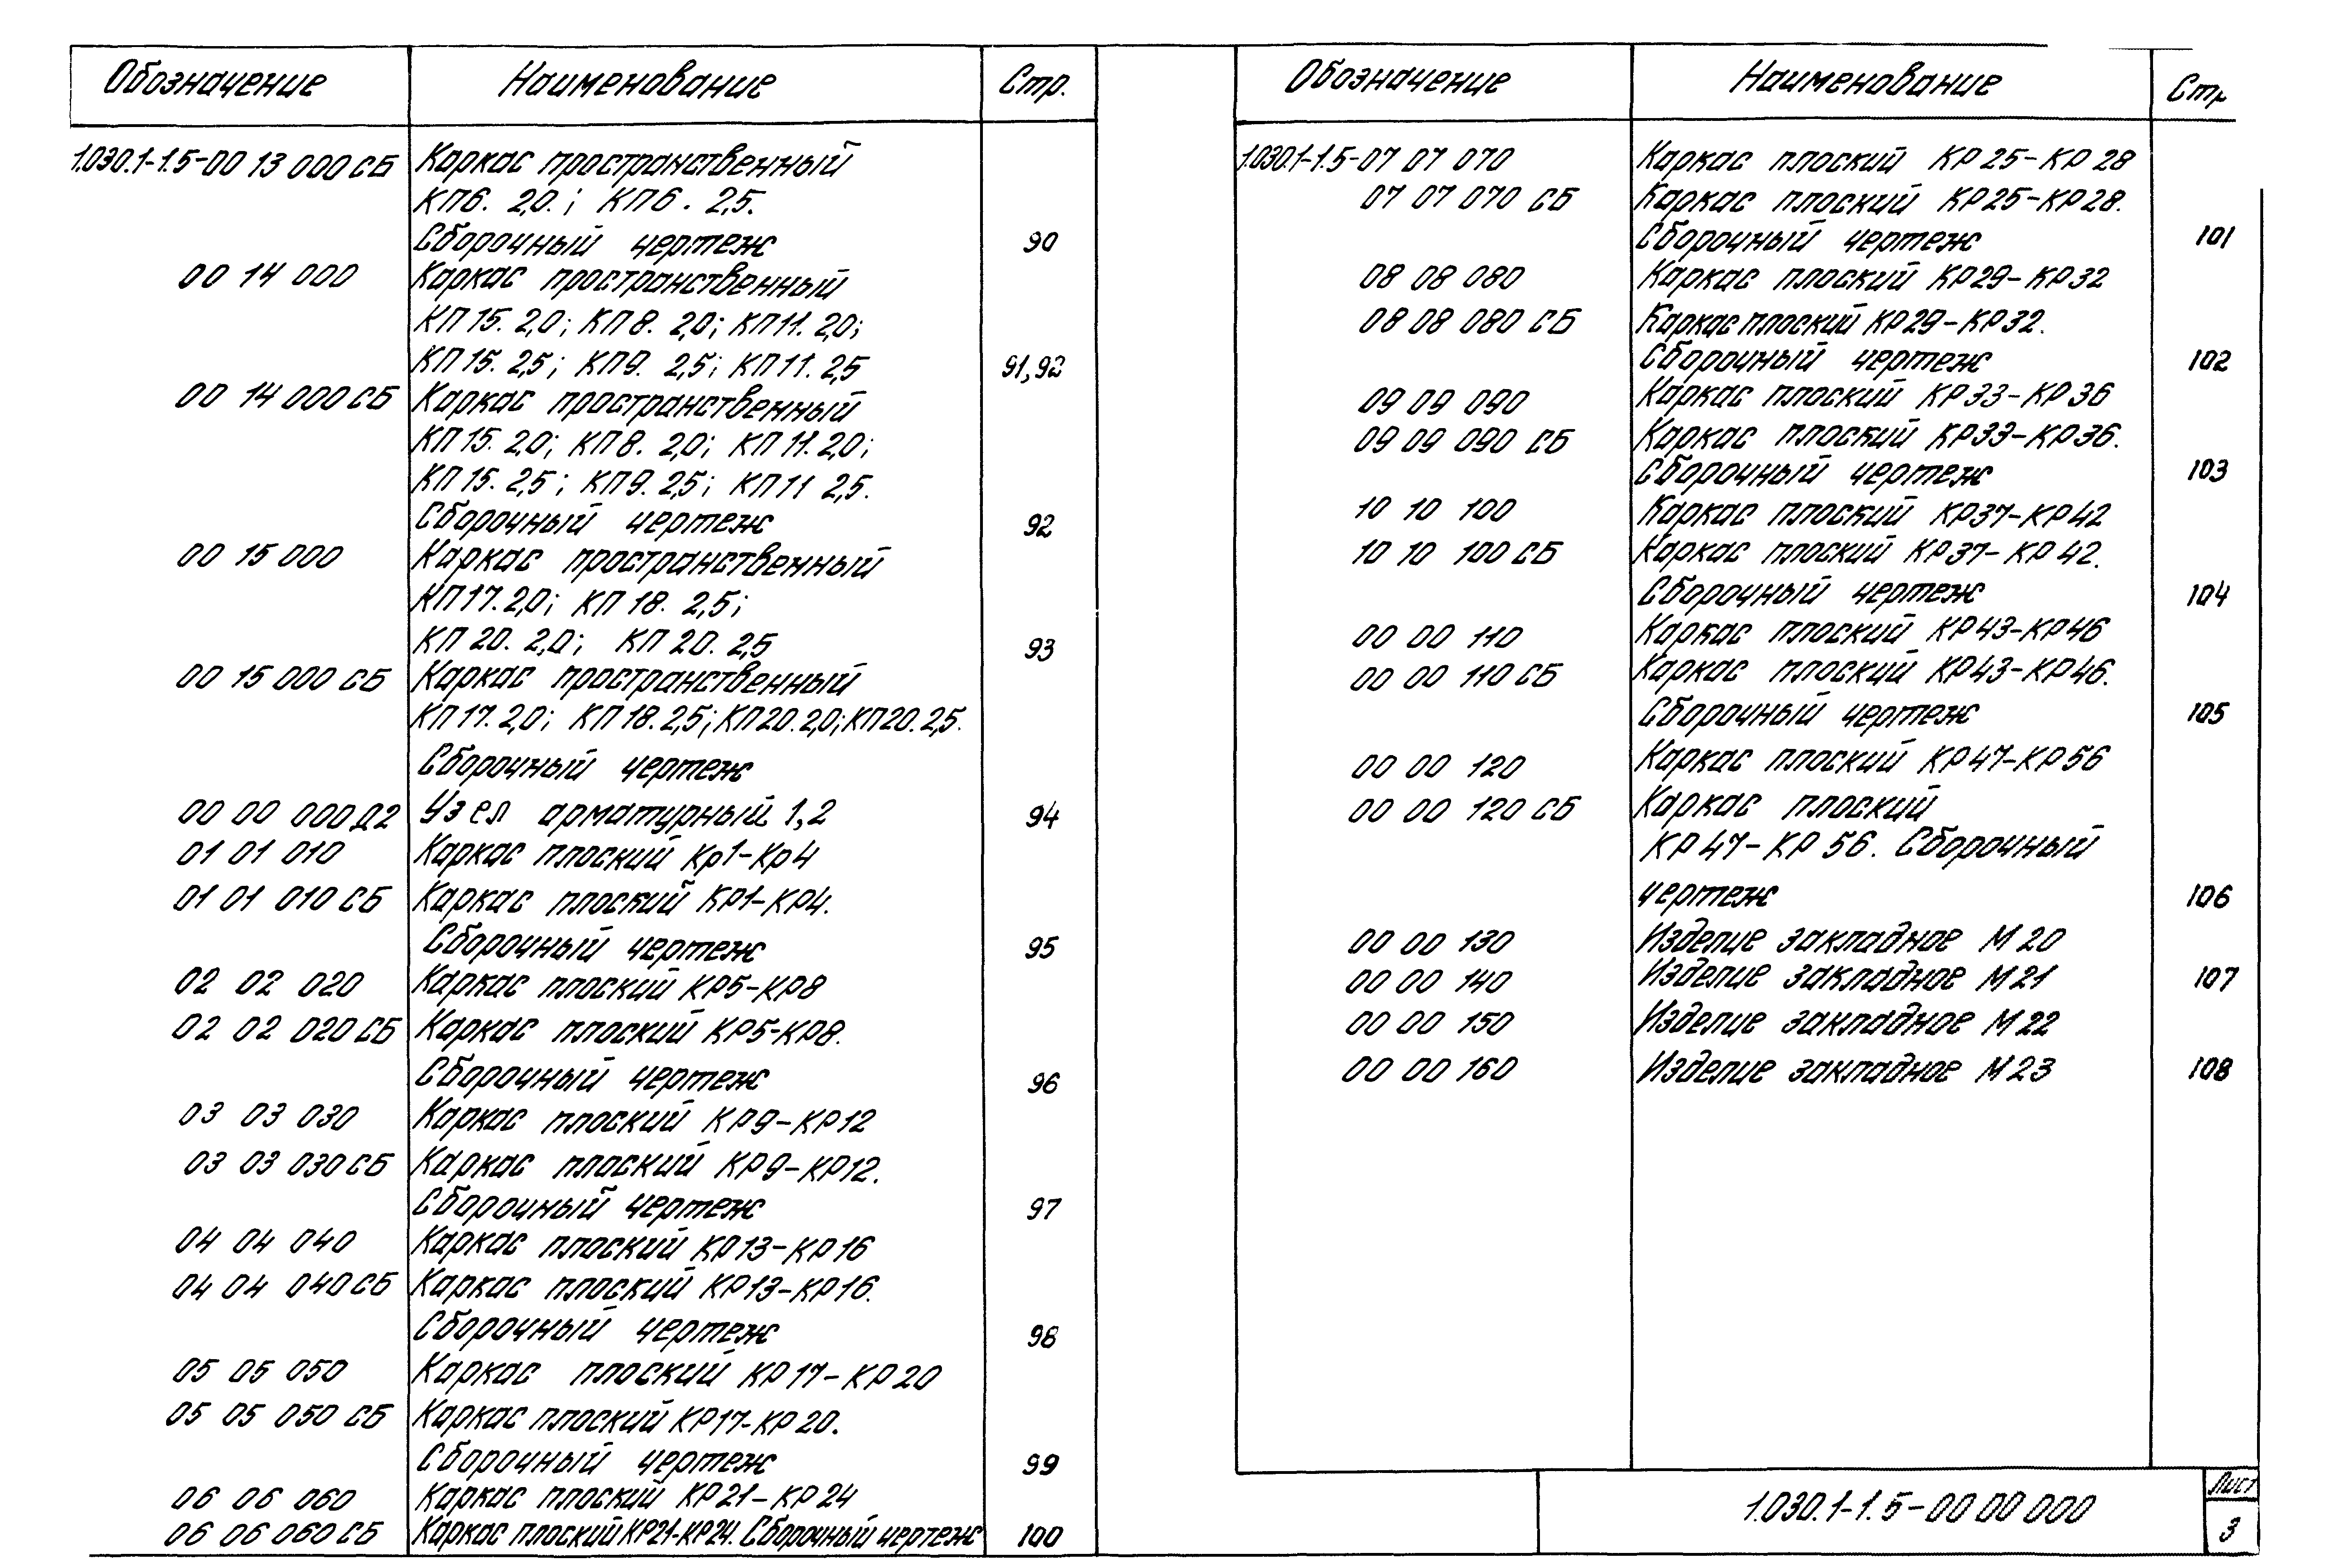 Обозначение Наименование Стр.
1.030.1-1.5-00 13 000 СБ Каркас пространственный
КП6. 2,0.; КП6. 2,5.
Сборочный чертеж 90
00 14 000 Каркас пространственный
КП15. 2,0; КП8. 2,0; КП11. 2,0;
КП15. 2,5; КП9. 2,5; КП11. 2,5 91,92
00 14 000 СБ Каркас пространственный
КП15. 2,0; КП8. 2,0; КП11. 2,0;
КП15. 2,5; КП9. 2,5; КП11 2,5.
Сборочный чертеж 92
00 15 000 Каркас пространственный
КП17. 2,0; КП18. 2,5;
КП20. 2,0; КП20. 2,5 93
00 15 000 СБ Каркас пространственный
КП17. 2,0; КП18. 2,5; КП20. 2,0; КП20. 2,5.
Сборочный чертеж
00 00 000 Д2 Узел арматурный 1,2 94
01 01 010 Каркас плоский Кр1-Кр4
01 01 010 СБ Каркас плоский КР1-КР4.
Сборочный чертеж 95
02 02 020 Каркас плоский КР5-КР8
02 02 020 СБ Каркас плоский КР5-КР8.
Сборочный чертеж 96
03 03 030 Каркас плоский КР9-КР12
03 03 030 СБ Каркас плоский КР9-КР12.
Сборочный чертеж 97
04 04 040 Каркас плоский КР13-КР16
04 04 040 СБ Каркас плоский КР13-КР16.
Сборочный чертеж 98
05 05 050 Каркас плоский КР17-КР20
05 05 050 СБ Каркас плоский КР17-КР20.
Сборочный чертеж 99
06 06 060 Каркас плоский КР21-КР24
06 06 060 СБ Каркас плоский КР21-КР24. Сборочный чертеж 100
Обозначение Наименование Стр
1.030.1-1.5-07 07 070 Каркас плоский КР25-КР28
07 07 070 СБ Каркас плоский КР25-КР28.
Сборочный чертеж 101
08 08 080 Каркас плоский КР29-КР32
08 08 080 СБ Каркас плоский КР29-КР32.
Сборочный чертеж 102
09 09 090 Каркас плоский КР33-КР36
09 09 090 СБ Каркас плоский КР33-КР36.
Сборочный чертеж 103
10 10 100 Каркас плоский КР37-КР42
10 10 100 СБ Каркас плоский КР37-КР42.
Сборочный чертеж 104
00 00 110 Каркас плоский КР43-КР46
00 00 110 СБ Каркас плоский КР43-КР46.
Сборочный чертеж 105
00 00 120 Каркас плоский КР47-КР56
00 00 120 СБ Каркас плоский
КР47-КР56. Сборочный
чертеж 106
00 00 130 Изделие закладное М20
00 00 140 Изделие закладное М21 107
00 00 150 Изделие закладное М22
00 00 160 Изделие закладное М23 108
1.030.1-1.5-00 00 000
Лист
3